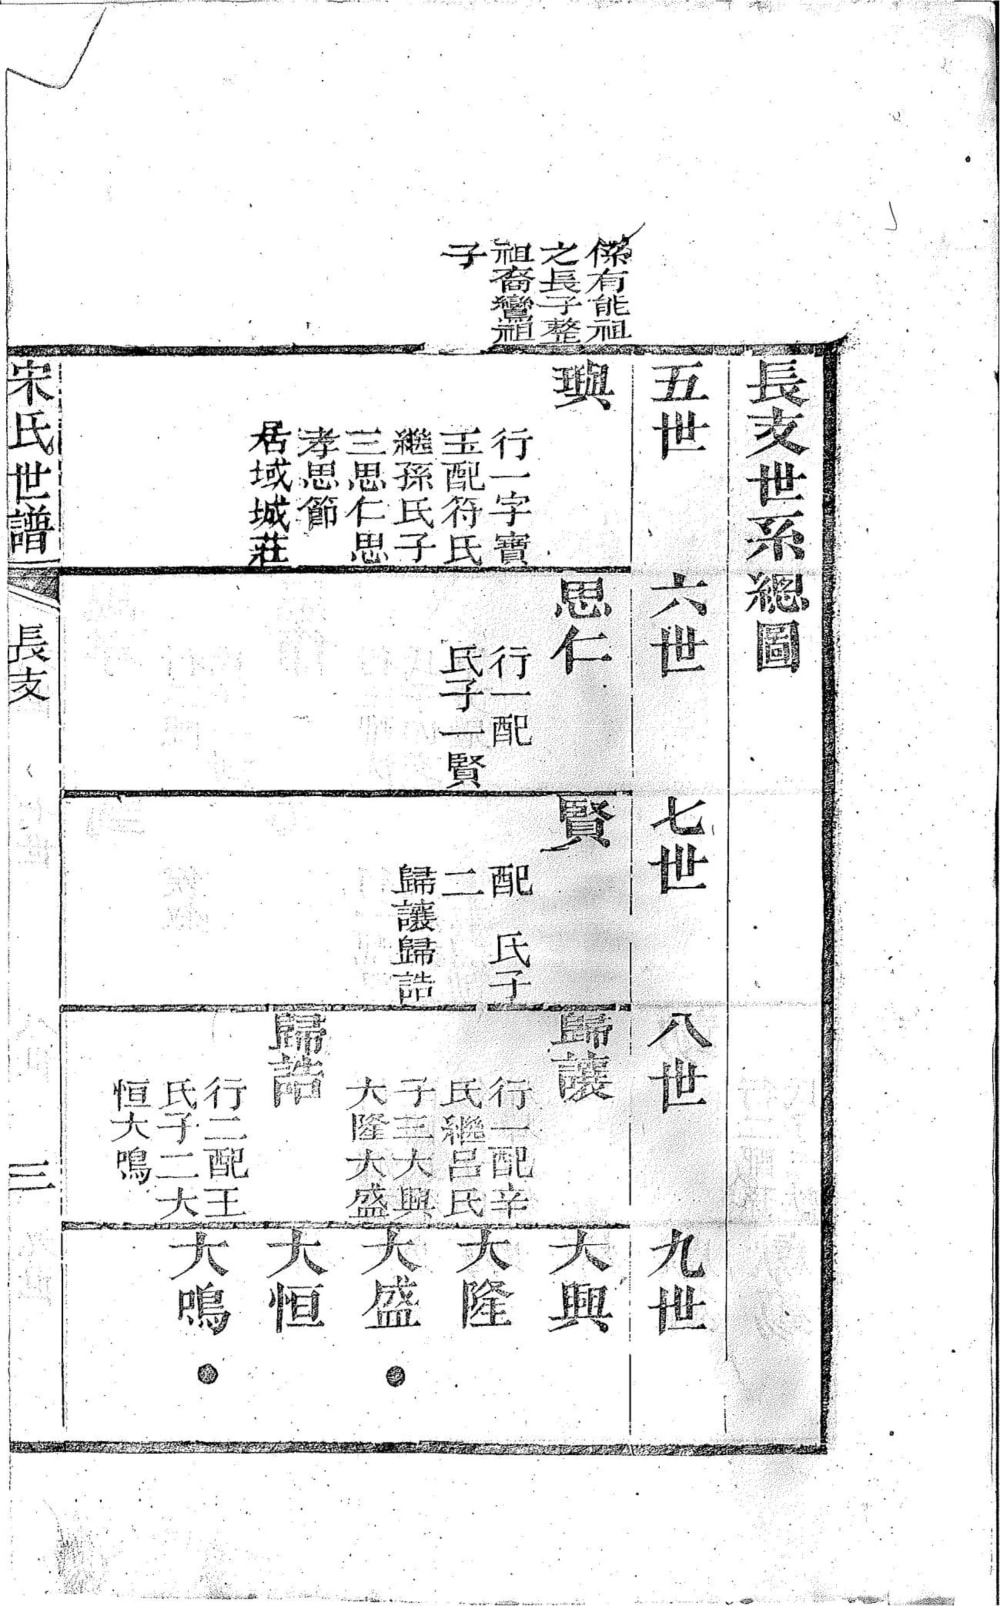 係有能祖
之長子整
祖裔鸞祖
子
長支世系總圖
五世
璵
行一字寶
玉配符氏
繼孫氏子
三思仁思
孝思節
居域城莊
六世
思仁
行一配
氏子一賢
七世
賢
配　氏子
二
歸讓歸誥
八世
歸讓
行一配辛
氏繼呂氏
子三大興
大隆大盛
歸誥
行二配王
氏子二大
恒大鳴
九世
大興
大隆
大盛
大恒
大鳴
宋氏世譜
長支
三